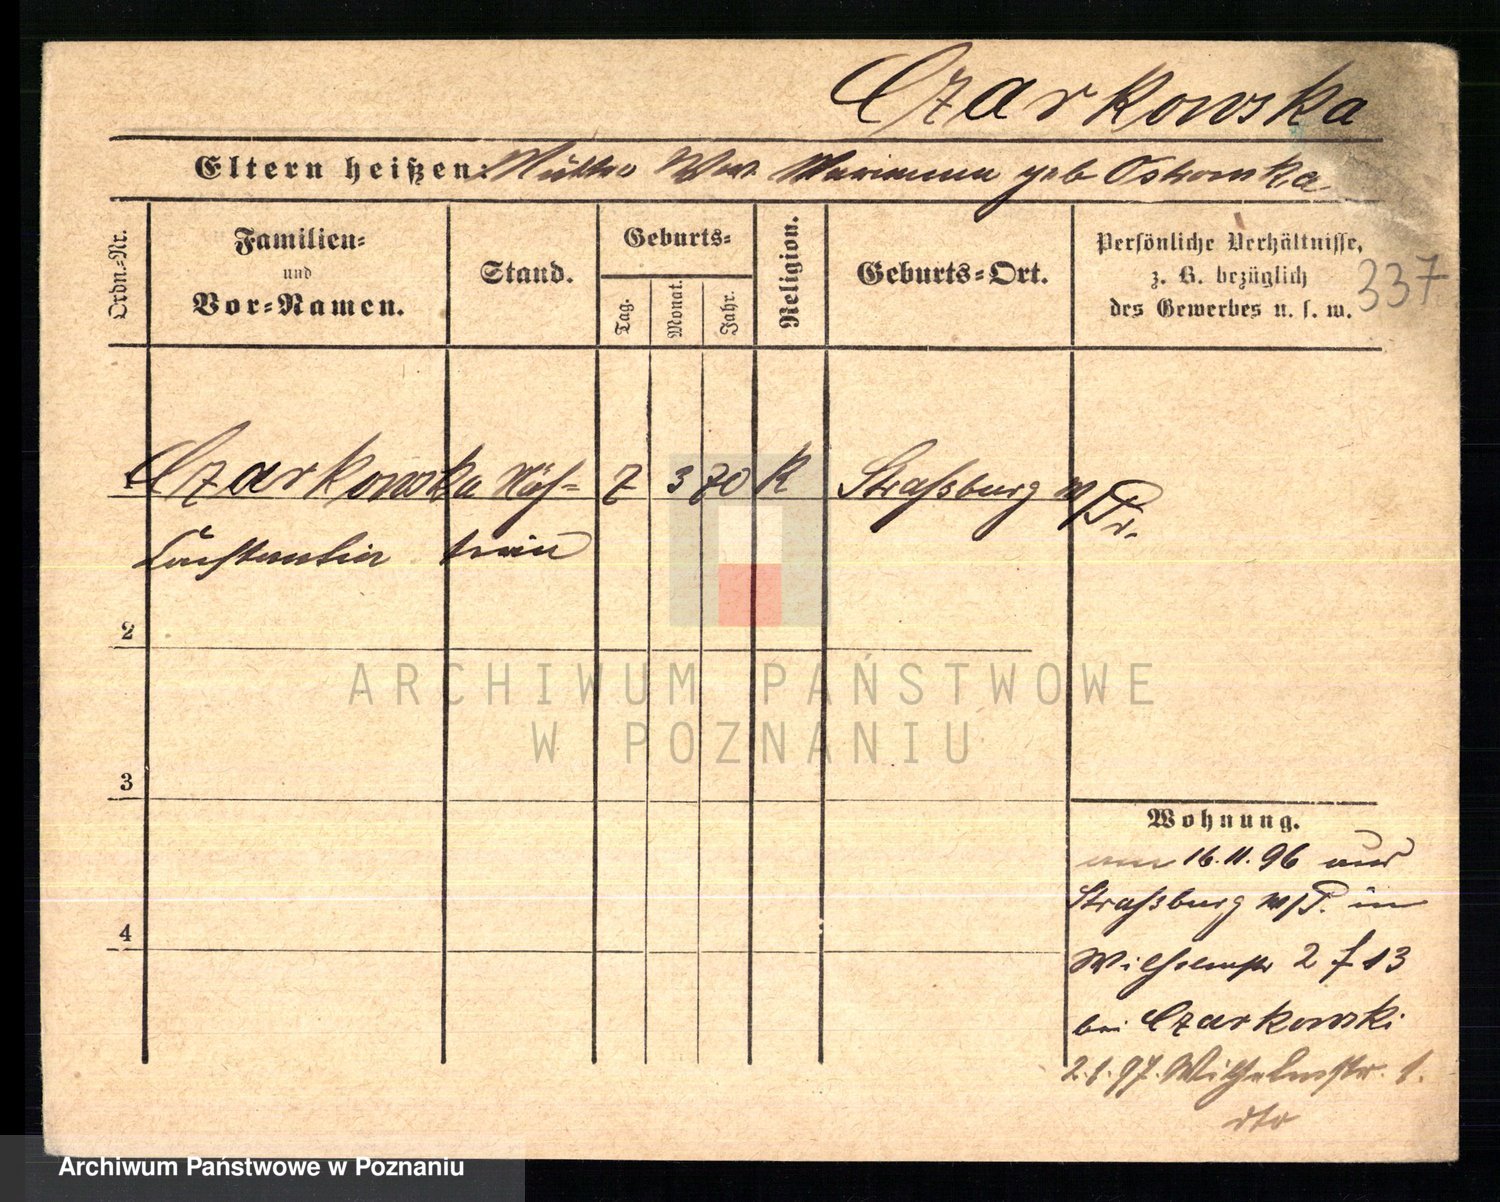 Czarkowska
Eltern heißen: Mutter Ww. Marianna geb Ostrowska
Ordn.-Nr.
Familien-
und
Vor-Namen.
Stand.
Geburts-
Tag.
Monat.
Jahr.
Religion.
Geburts-Ort.
Persönliche Verhältnisse,
z. B. bezüglich
des Gewerbes u. s. w.
337
1 Czarkowska Näh- 7 3 70 K Straßburg W/Pr.
Constantia terin
2
3
4
Wohnung.
am 16.11.96 aus
Straßburg W/P. in
Wilhelmstr 2 f 13
bei Czarkowski
2.1.97. Wilhelmstr. 1.
dto
ARCHIWUM PAŃSTWOWE
W POZNANIU
Archiwum Państwowe w Poznaniu